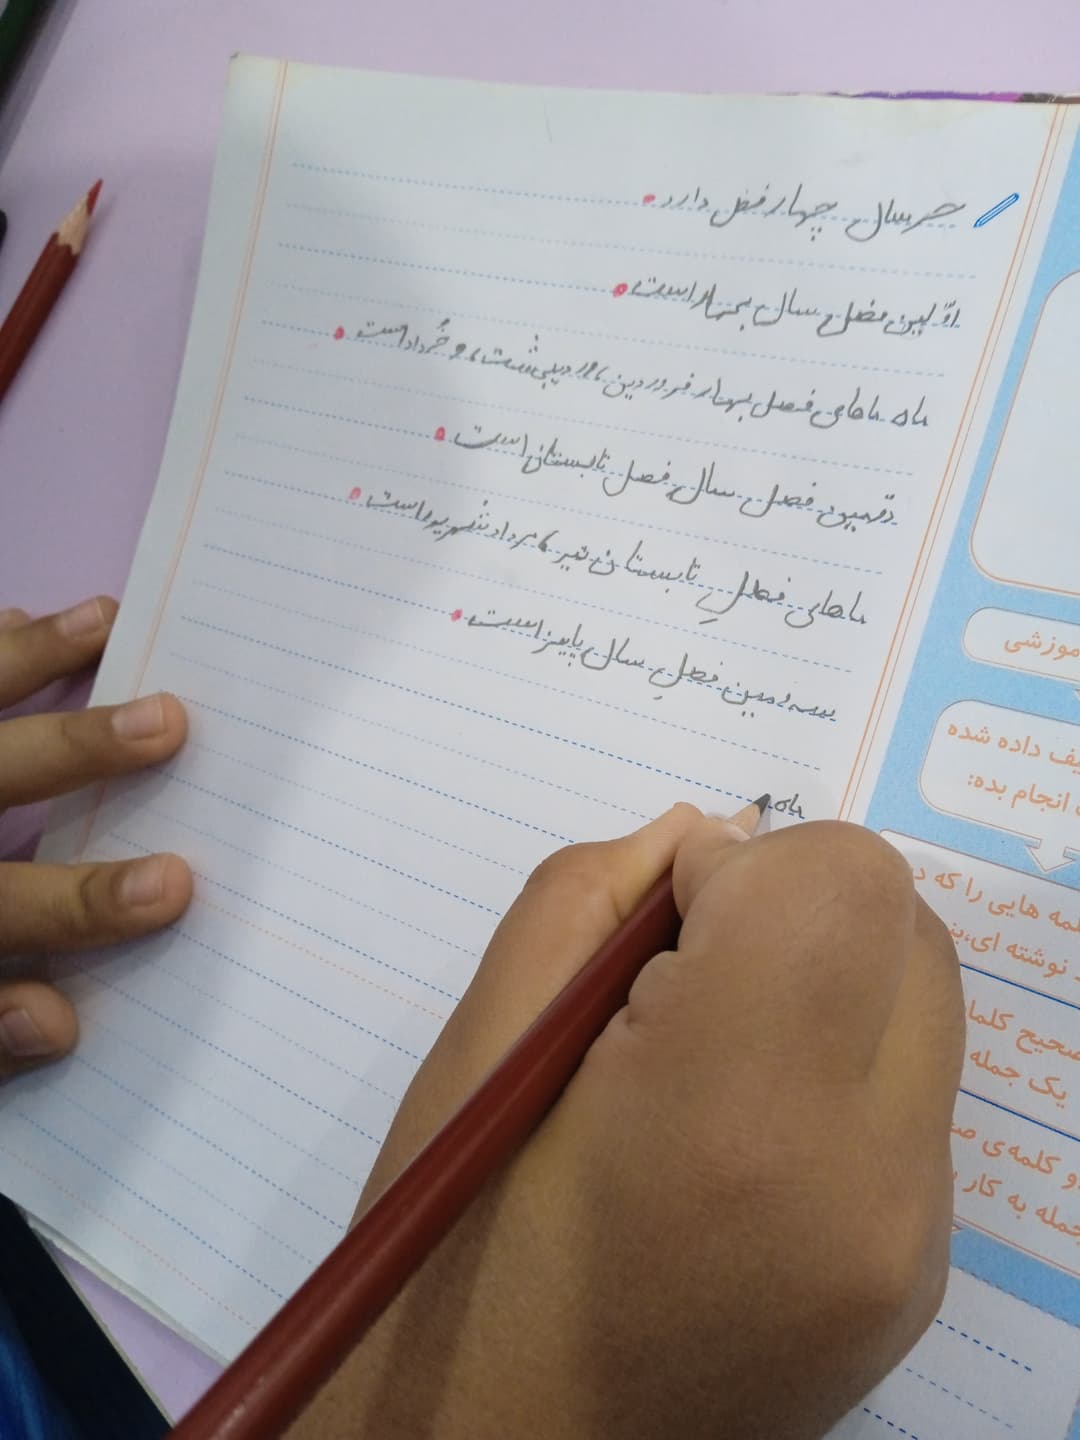 هرسال چهار فصل دارد.
اوّلین فصل سال بهار است.
ماه ماهای فصل بهار فروردین، اردیبهشت، و خُرداد است.
دومین فصل سال فصل تابستان است.
ماهای فصلِ تابستان تیر، مرداد شهریور است.
سه ومین فصلِ سال پاییز است.
ماه
موزشی
یف داده شده
انجام بده:
مه هایی را که د
نوشته ای،بن
صحیح کلما
یک جمله
و کلمه‌ی ص
جمله به کار